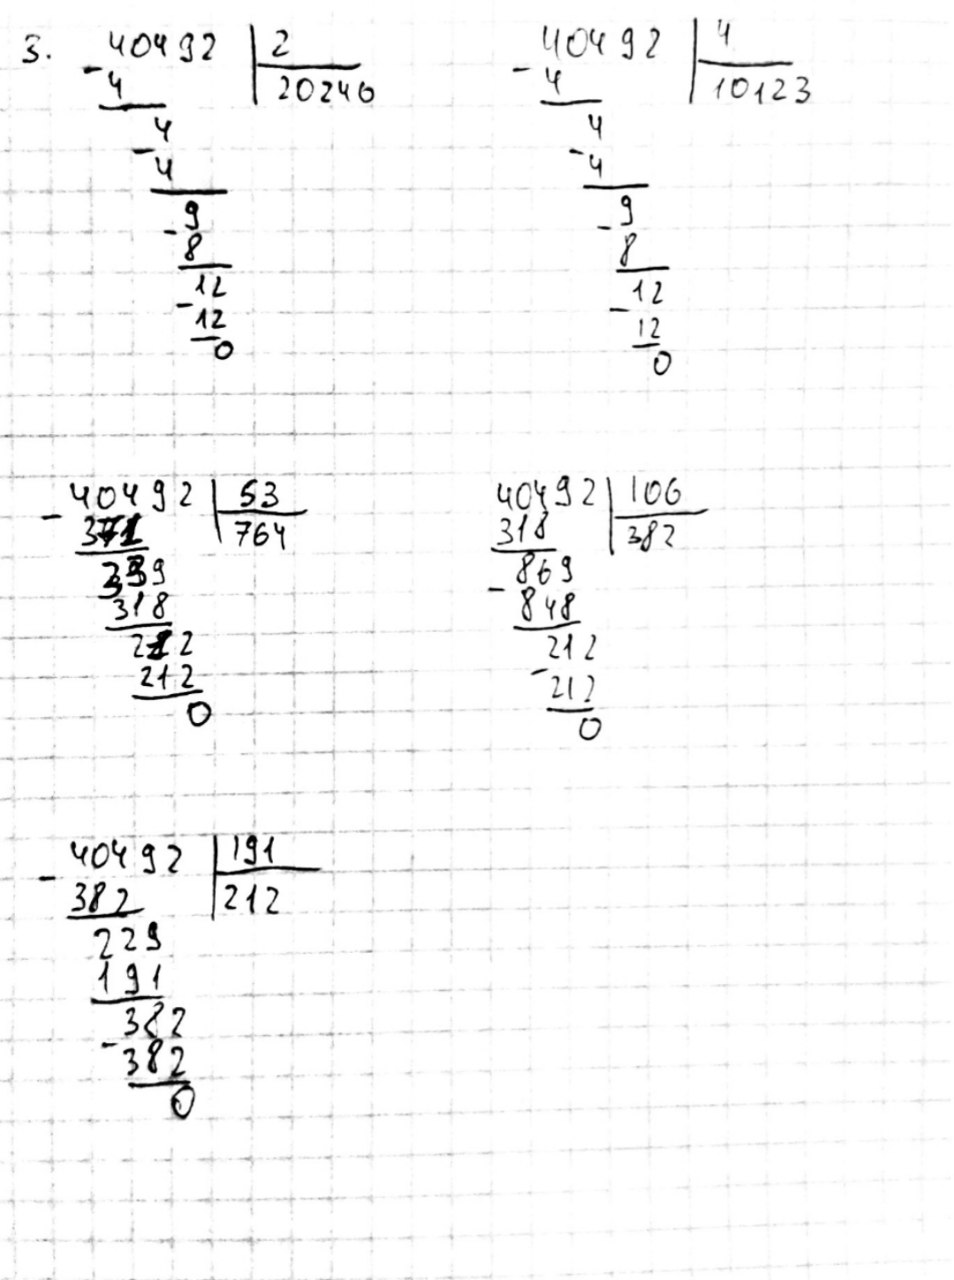 3. 40492 | 2 40492 | 4
- 4 20246 - 4 10123
4 4
- 4 - 4
9 9
- 8 - 8
12 12
- 12 - 12
0 0
40492 | 53 40492 | 106
- 371 764 318 382
339 869
318 - 848
212 212
212 - 212
0 0
40492 | 191
- 382 212
229
191
382
- 382
0